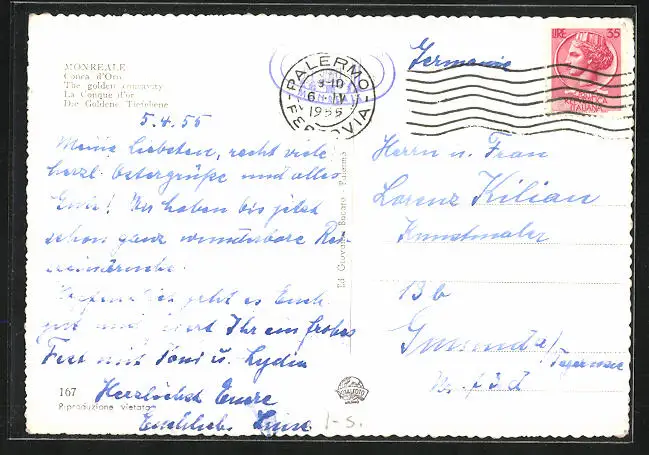 MONREALE
Conca d'Oro
The golden concavity
La Conque d'or
Die Goldene Tiefebene
5.4.55
Meine Liebsten, recht viele
herzl. Ostergrüße und alles
Gute! Wir haben bis jetzt
schon ganz wunderbare
geht es Euch
gut und Ihr ein frohes
Fest mit Toni u. Lydia
Herzlichst Eure
167
Riproduzione vietata
Ed Giovanni Bocaro Palermo
PALERMO
9-10
6 IV
1955
FERROVIA
Germania
LIRE 35
REPUBBLICA
ITALIANA
Herrn u. Frau
Lorenz Kilian
Kunstmaler
13b
Gmund a/
Tegernsee
I-S.